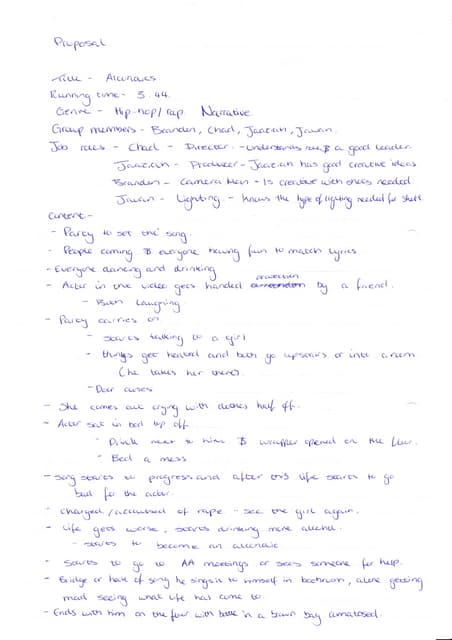 Proposal
Title - Alcoholics
Running time - 3.44.
Genre - Hip-hop/rap. Narrative.
Group members - Brandon, Chad, Jaazian, Jawan.
Job roles - Chad - Director - understands music & a good leader.
Jaazian - Producer - Jaazian has good creative ideas
Brandon - Camera Man - Is creative with shots needed.
Jawan - Lighting - knows the type of lighting needed for shots.
Content -
- Party to set the song.
- People coming & everyone having fun to match lyrics.
- Everyone dancing and drinking
protection
- Actor in the video gets handed by a friend.
- Both laughing.
- Party carries on
- starts talking to a girl
- things get heated and both go upstairs or into a room
(he takes her there).
- Door closes
- She comes out crying with clothes half off.
- Actor sat in bed top off
- Drink next to him & wrapper opened on the floor.
- Bed a mess
- Song starts to progress and after this life starts to go
bad for the actor.
- Charged/accused of rape. - see the girl again.
- Life gets worse, starts drinking more alcohol.
- starts to become an alcoholic
- Starts to go to AA meetings or sees someone for help.
- Bridge or hook of song he sings it to himself in bathroom, alone getting
mad seeing what life has come to.
- Ends with him on the floor with bottle in a brown bag comatosed.